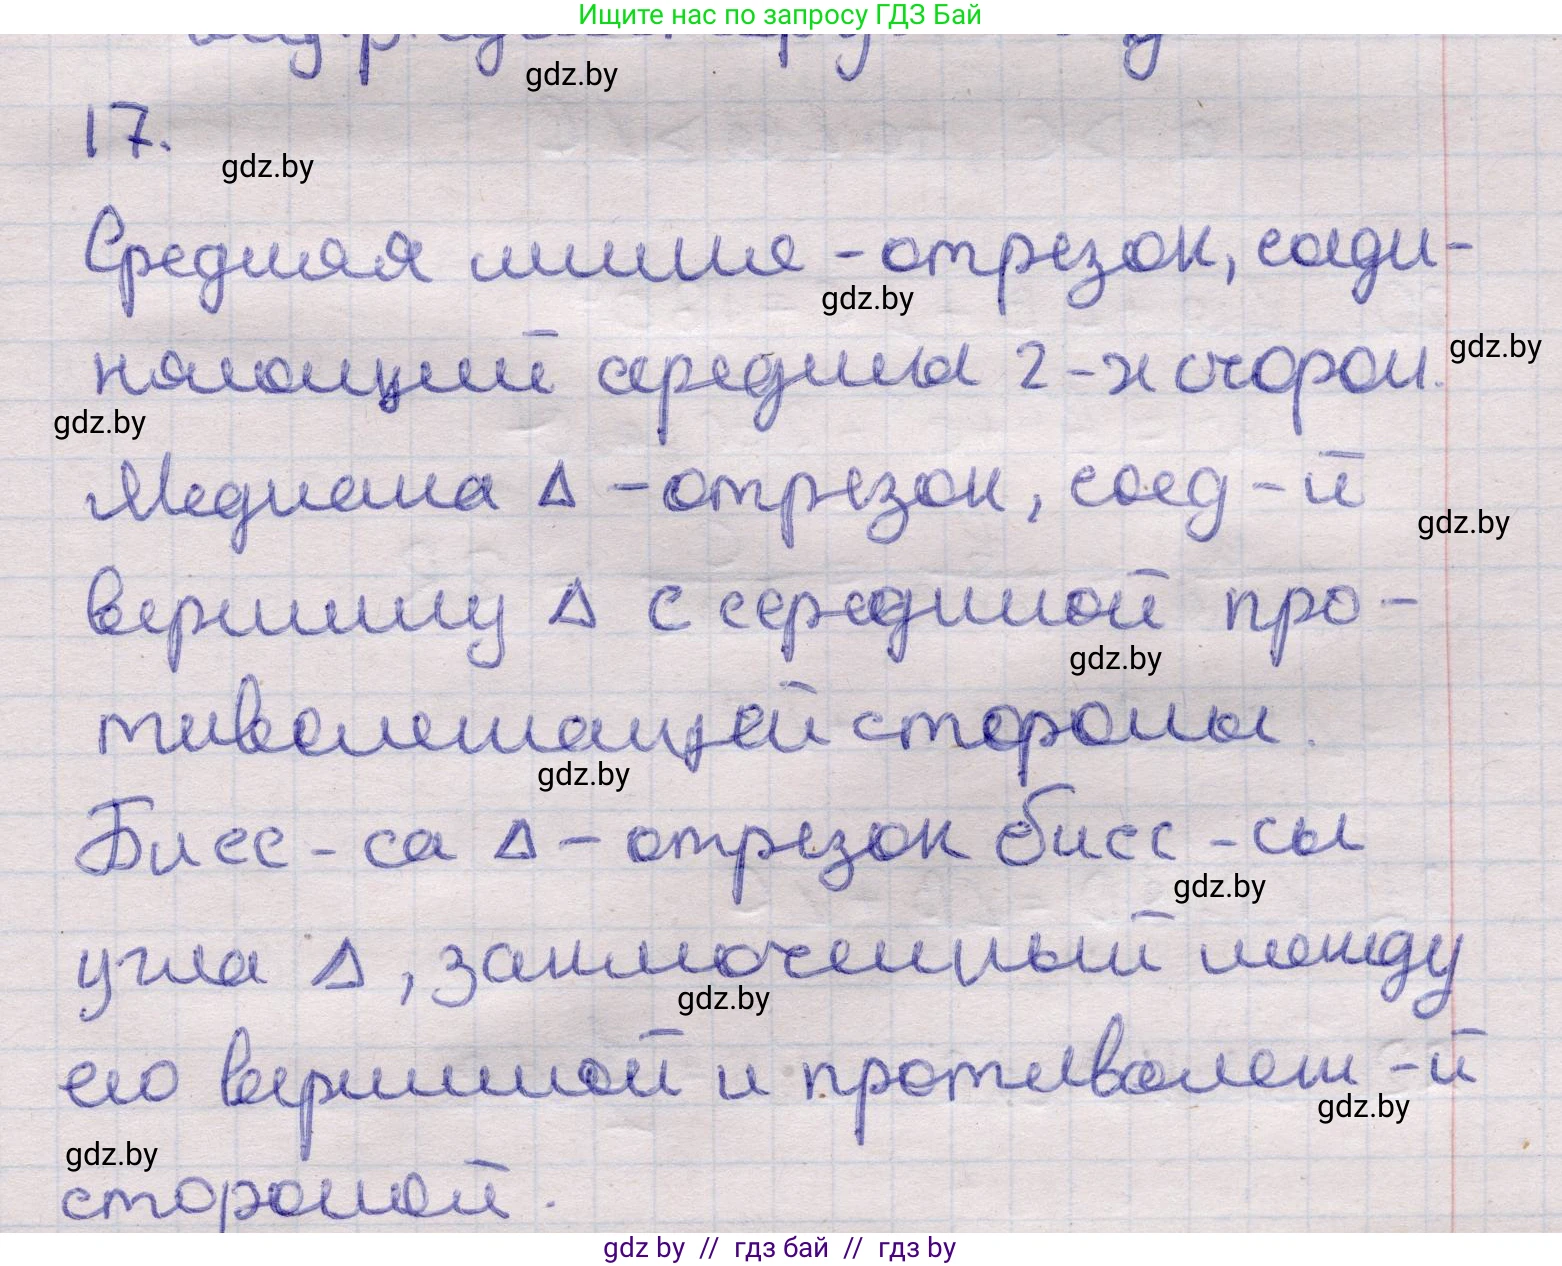 Ищите нас по запросу ГДЗ Бай
gdz.by
17.
gdz.by
Средняя линия - отрезок, соеди-
gdz.by
няющий середины 2-х сторон.
gdz.by
gdz.by
Медиана Δ - отрезок, соед-й
gdz.by
вершину Δ с серединой про-
gdz.by
тиволежащей стороны.
gdz.by
Бисс-са Δ - отрезок бисс-сы
gdz.by
угла Δ, заключенный между
gdz.by
его вершиной и противолеж-й
gdz.by
gdz.by
стороной.
gdz by // гдз бай // гдз by